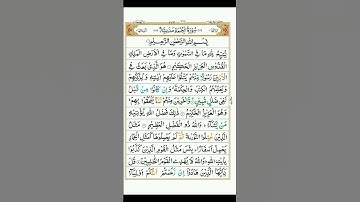 سُوْرَةُ الْجُمُعَةِ مَدَنِيَّةٌ
بِسْمِ اللهِ الرَّحْمٰنِ الرَّحِيْمِ
يُسَبِّحُ لِلّٰهِ مَا فِي السَّمٰوٰتِ وَمَا فِي الْاَرْضِ الْمَلِكِ
الْقُدُّوْسِ الْعَزِيْزِ الْحَكِيْمِ ۝ هُوَ الَّذِيْ بَعَثَ فِي
الْاُمِّيّٖنَ رَسُوْلًا مِّنْهُمْ يَتْلُوْا عَلَيْهِمْ اٰيٰتِهٖ وَيُزَكِّيْهِمْ
وَيُعَلِّمُهُمُ الْكِتٰبَ وَالْحِكْمَةَ وَاِنْ كَانُوْا مِنْ قَبْلُ
لَفِيْ ضَلٰلٍ مُّبِيْنٍ ۝ وَّاٰخَرِيْنَ مِنْهُمْ لَمَّا يَلْحَقُوْا بِهِمْ
وَهُوَ الْعَزِيْزُ الْحَكِيْمُ ۝ ذٰلِكَ فَضْلُ اللهِ يُؤْتِيْهِ
مَنْ يَّشَآءُ وَاللهُ ذُو الْفَضْلِ الْعَظِيْمِ ۝ مَثَلُ
الَّذِيْنَ حُمِّلُوا التَّوْرٰىةَ ثُمَّ لَمْ يَحْمِلُوْهَا كَمَثَلِ الْحِمَارِ
يَحْمِلُ اَسْفَارًا بِئْسَ مَثَلُ الْقَوْمِ الَّذِيْنَ كَذَّبُوْا
بِاٰيٰتِ اللهِ وَاللهُ لَا يَهْدِي الْقَوْمَ الظّٰلِمِيْنَ ۝ قُلْ
يٰٓاَيُّهَا الَّذِيْنَ هَادُوْٓا اِنْ زَعَمْتُمْ اَنَّكُمْ اَوْلِيَآءُ